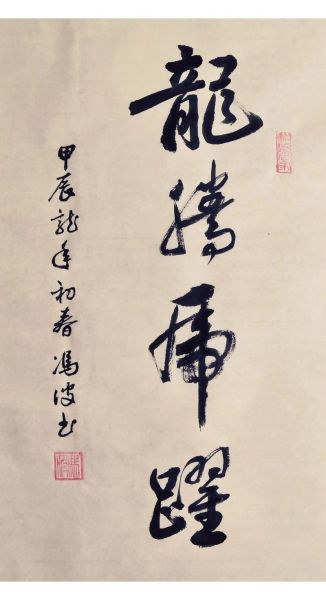 龍騰虎躍
甲辰龍年初春馮波书